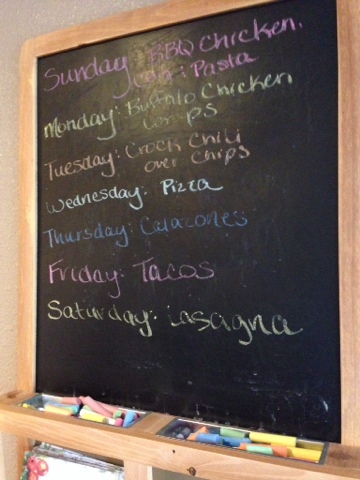 Sunday: BBQ Chicken,
Pasta
Monday: Buffalo Chicken
Wraps
Tuesday: Crock Chili
over chips
Wednesday: Pizza
Thursday: Calazones
Friday: Tacos
Saturday: Lasagna